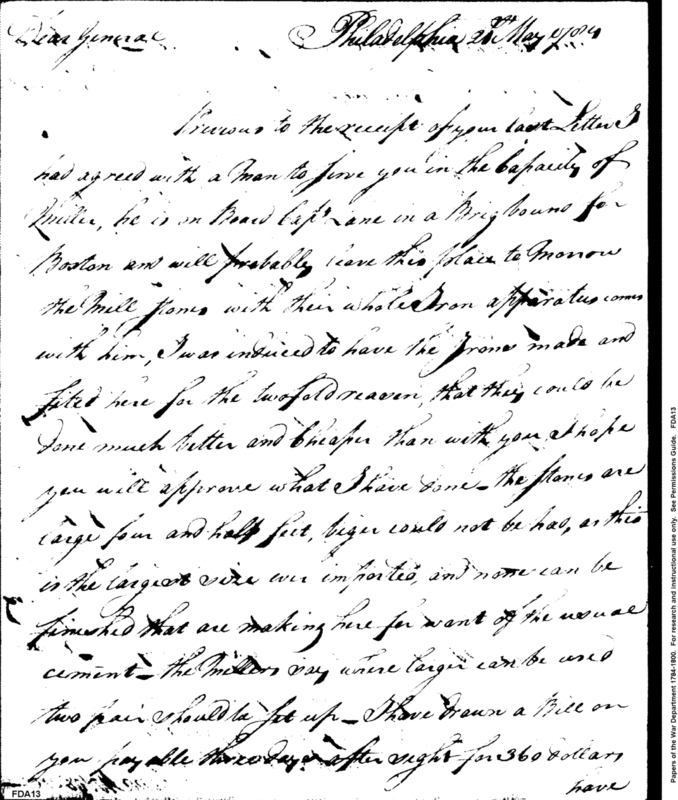 Dear General Philadelphia 20th May 1784
Previous to the receipt of your last Letter I
had agreed with a Man to serve you in the Capacity of
Miller, he is on Board Capt Lane in a Brig bound for
Boston and will probably leave this place to Morrow
the Mill stones with their whole Iron apparatus comes
with him, I was induced to have the Irons made and
fited here for the twofold reason, that they could be
done much better and Cheaper than with you, I hope
you will approve what I have done – the stones are
large four and half feet, biger could not be had, as this
is the largest size ever imported, and none can be
finished that are making here for want of the usual
cement – the Millers say where larger can be used
two pair should be set up – I have drawn a Bill on
you payable three days after sight for 360 dollars
have
FDA13
Papers of the War Department 1784-1800. For research and instructional use only. See Permissions Guide. FDA13